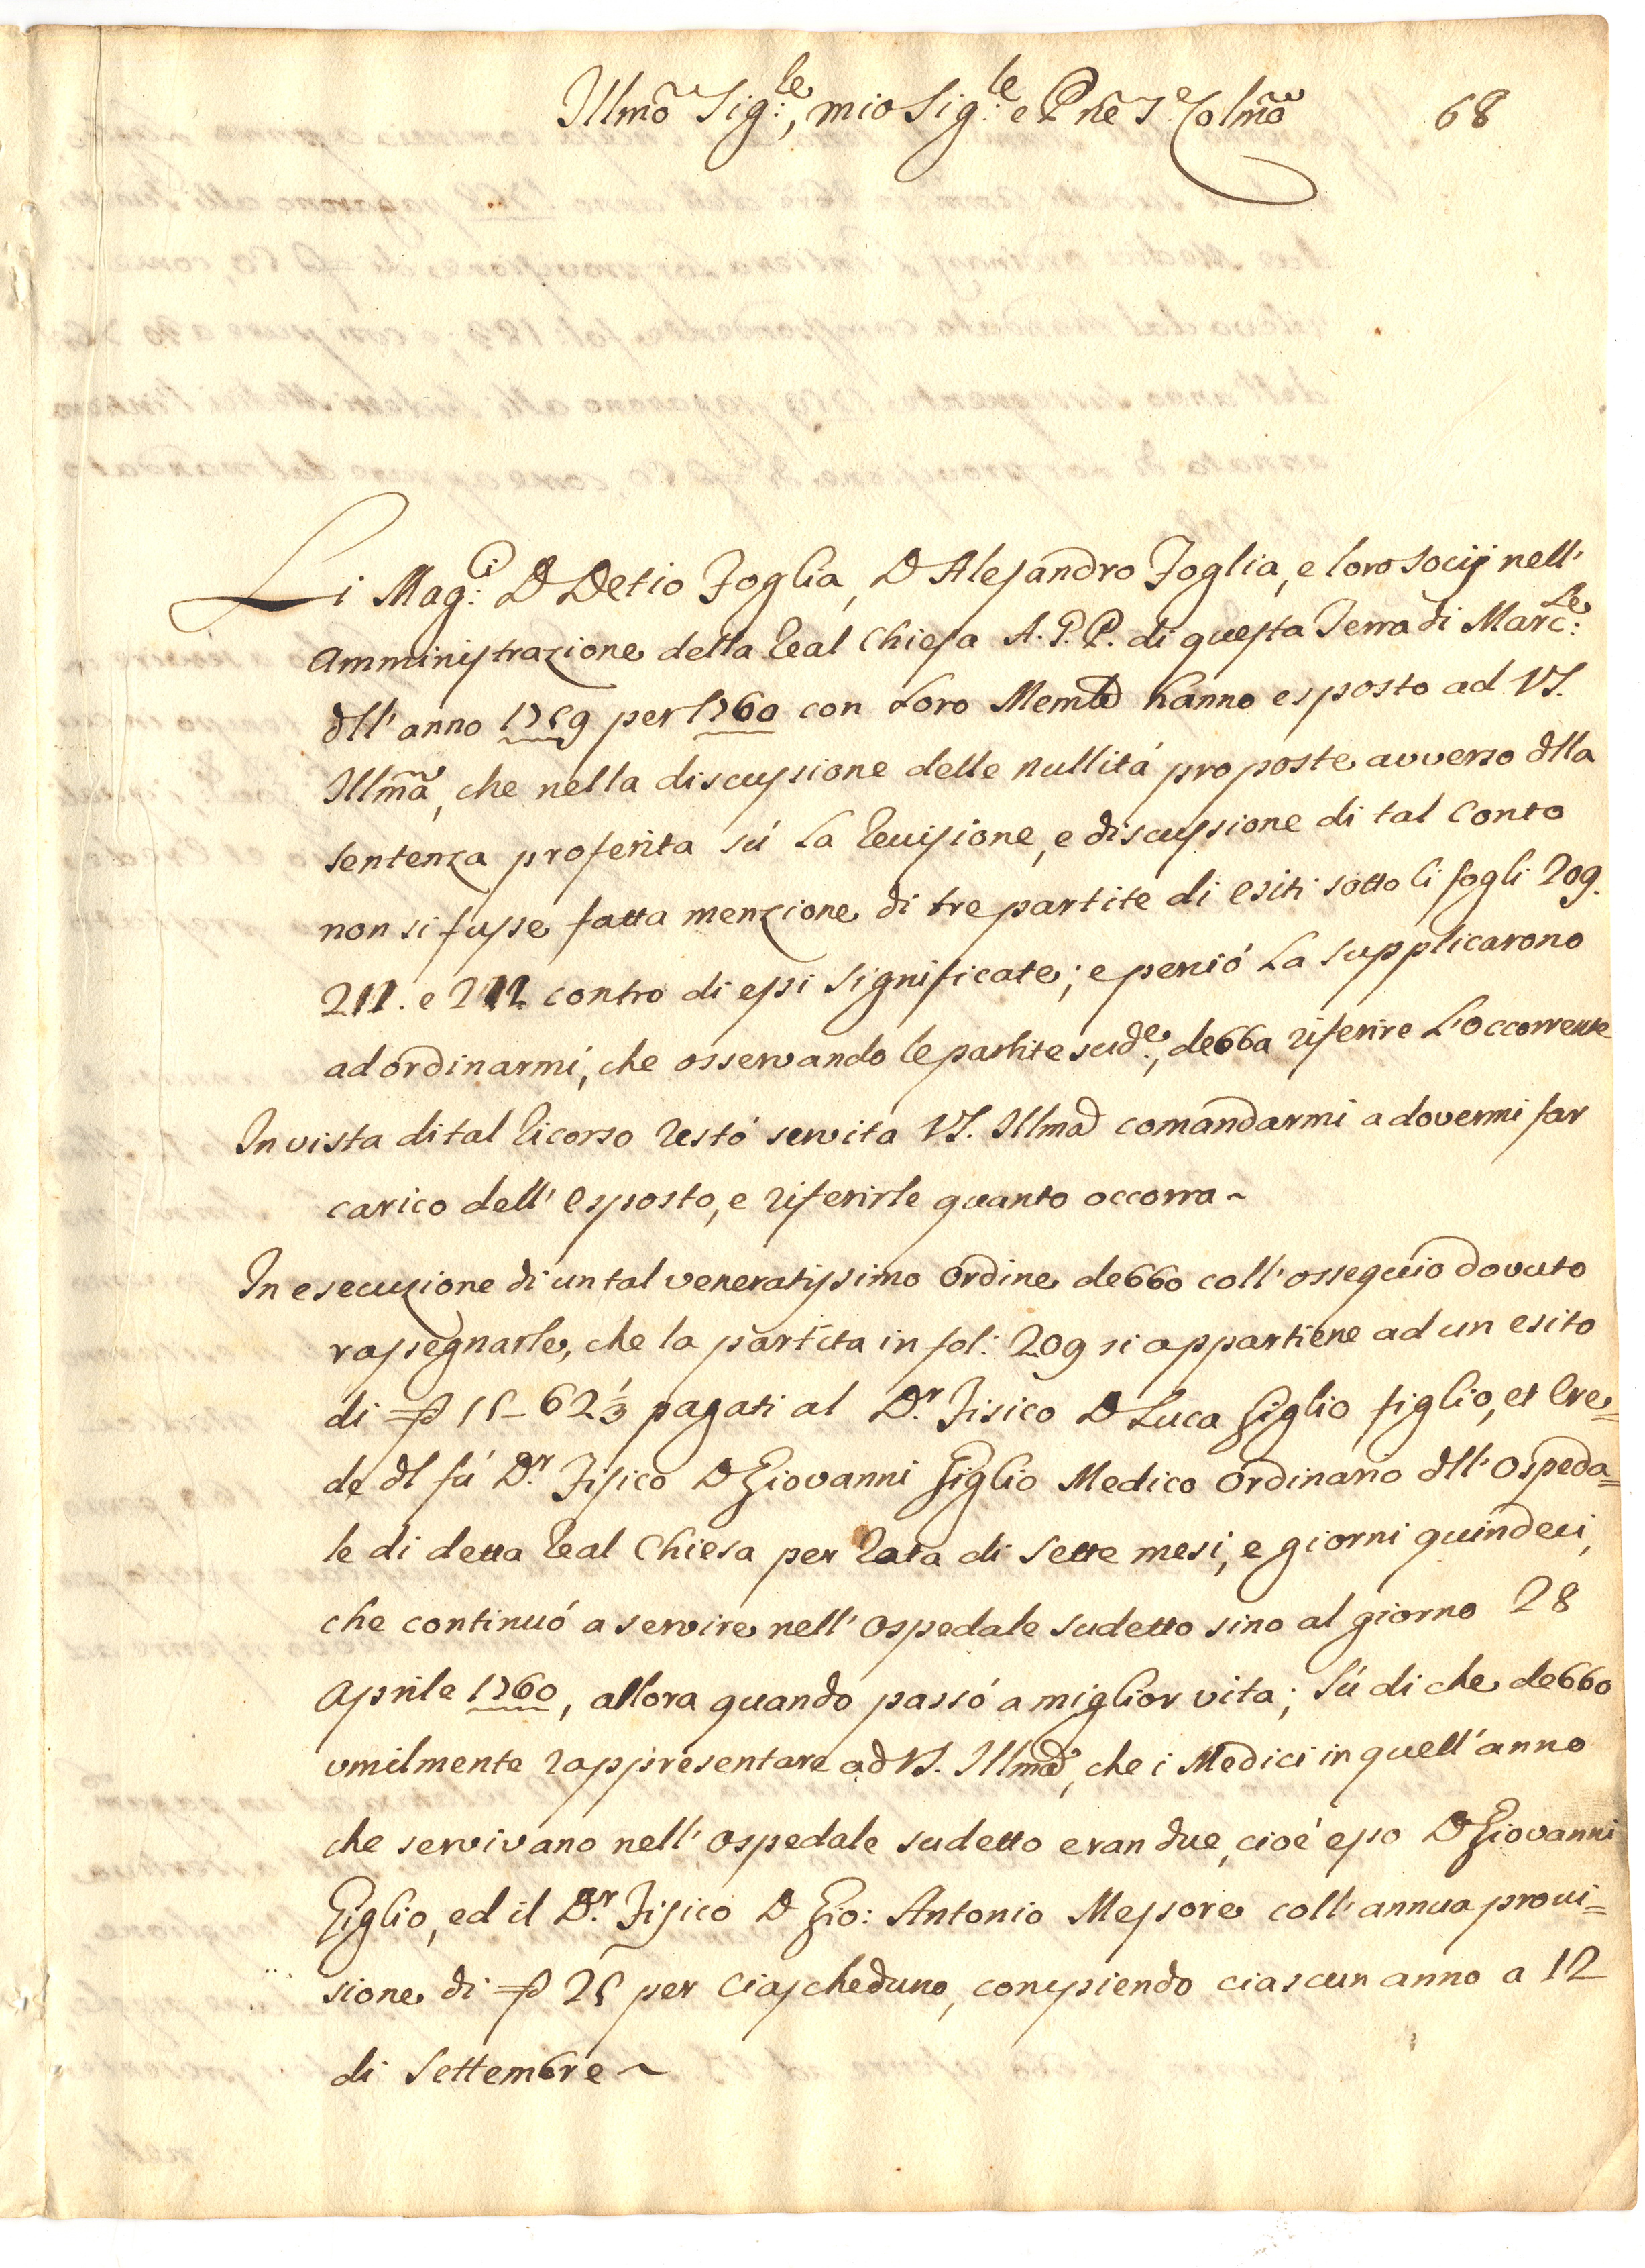 Illmõ Sig.le, mio Sig.le e Pñe Se Colmõ
68
Li Mag:ci D Detio Foglia, D Alesandro Foglia, e loro Socij nell'
Amministrazione della Real Chiesa A. P. P. di questa Terra di Marc:le
dll'anno 1759 per 1760 con loro Mem.le hanno esposto ad VS.
Illmã, che nella discussione delle nullitá proposte avverso dlla
sentenza proferita sú la Revisione, e discussione di tal Conto
non si fusse fatta menzione di tre partite di esiti sotto li fogli 209.
211. e 212 contro di essi significate; e perció la supplicarono
ad ordinarmi, che osservando le partite sud.e, debba riferire l'occorrente
In vista di tal Ricorso restó servita VS. Illma comandarmi a dovermi far
carico dell' esposto, e riferirle quanto occorra ~
In esecuzione di un tal veneratissimo ordine debbo coll'ossequio dovuto
rassegnarle, che la partita in fol: 209 si appartiene ad un esito
di D 15– 62⅓ pagati al D.r Fisico D Luca Giglio figlio, et Ere=
de dl fú D.r Fisico D Giovanni Giglio Medico Ordinario dll'Ospeda=
le di detta Real Chiesa per Rata di Sette mesi, e giorni quindeci,
che continuó a servire nell'Ospedale sudetto sino al giorno 28
Aprile 1760, allora quando passó a miglior vita; Sú di che debbo
umilmente rappresentare ad VS. Illma, che i Medici in quell'anno
che servivano nell'Ospedale sudetto eran due, cioé esso D Giovanni
Giglio, ed il D.r Fisico D Gio: Antonio Messore coll'annua provi=
sione di D 25 per ciascheduno, compiendo ciascun anno a 12
di Settembre ~